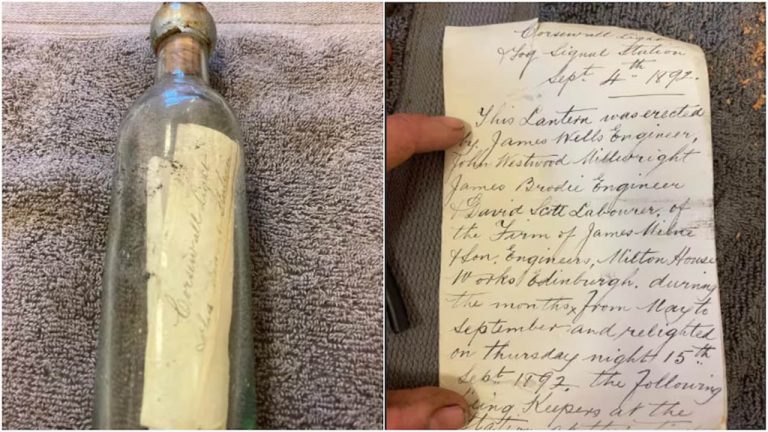 Corsewall Light
Corsewall Light
& Fog Signal Station
Sept. 4th 1892.
This Lantern was erected
by James Wells Engineer,
John Westwood Millwright
James Brodie Engineer
& David Scott Labourer, of
the Firm of James Milne
& Son, Engineers, Milton House
Works Edinburgh. during
the months from May to
September and relighted
on Thursday night 15th
Sept. 1892. the following
being Keepers at the